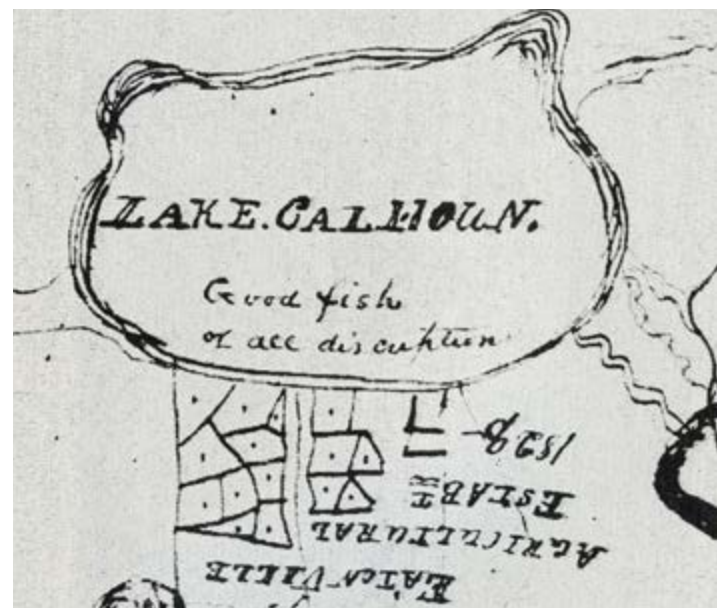 LAKE. CALHOUN.
Good fish
of all discuption
EATONVILLE
AGRICULTURAL
ESTABT
1829